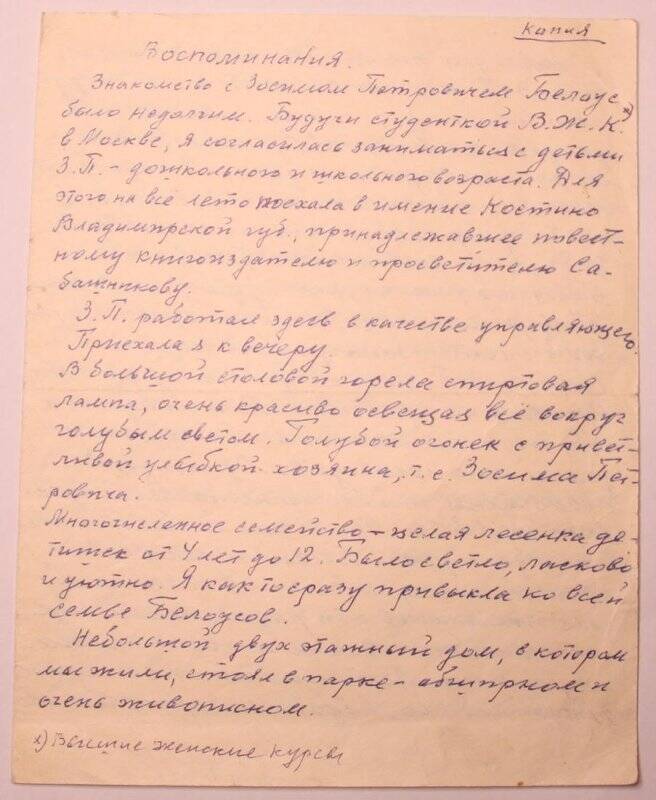 Копия
Воспоминания.
Знакомство с Зосимом Петровичем Белоус
было недолгим. Будучи студенткой В.Ж.К. х)
в Москве, я согласилась заниматься с детьми
З.П. – дошкольного и школьного возраста. Для
этого на всё лето поехала в имение Костино
Владимирской губ., принадлежавшее извест-
ному книгоиздателю и просветителю Са-
башникову.
З.П. работал здесь в качестве управляющего.
Приехала я к вечеру.
В большой столовой горела спиртовая
лампа, очень красиво освещая всё вокруг
голубым светом. Голубой огонек с привет-
ливой улыбкой хозяина, т.е. Зосима Пет-
ровича.
Многочисленное семейство – целая лесенка де-
тишек от 4 лет до 12. Было светло, ласково
и уютно. Я как то сразу привыкла ко всей
семье Белоусов.
Небольшой двух этажный дом, в котором
мы жили, стоял в парке – обширном и
очень живописном.
х) Высшие женские курсы